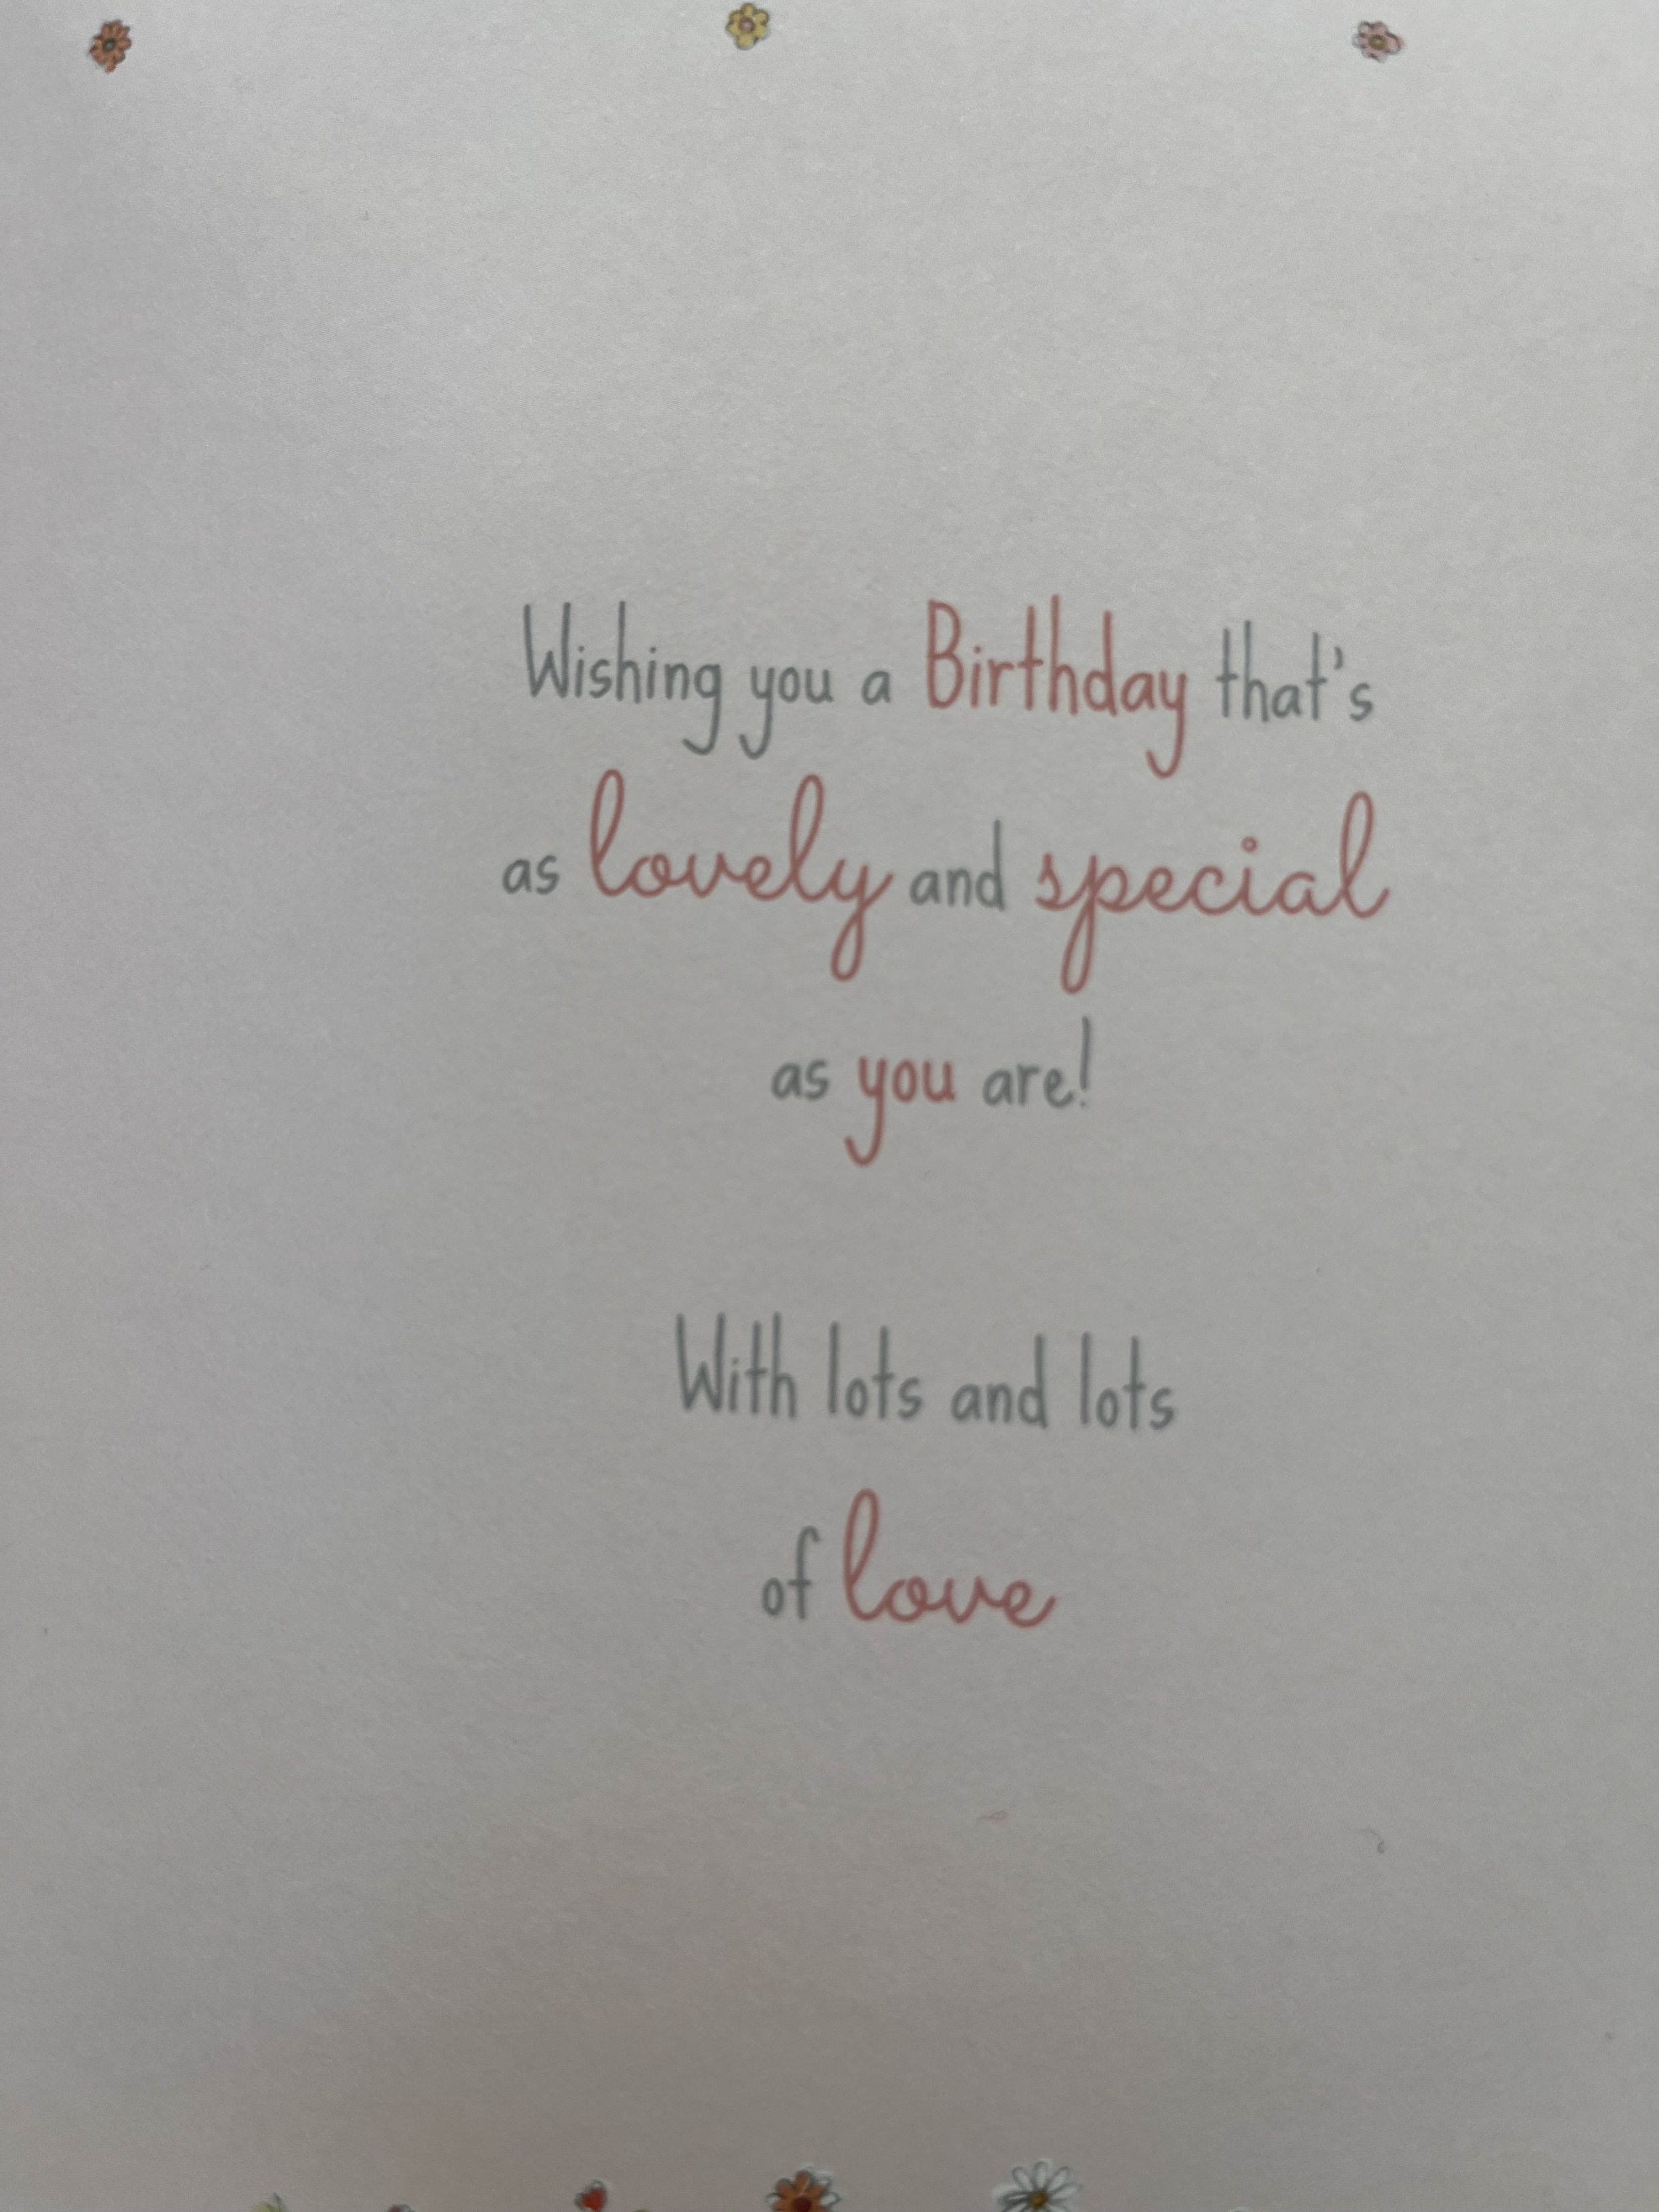 Wishing you a Birthday that's
as lovely and special
as you are!
With lots and lots
of love